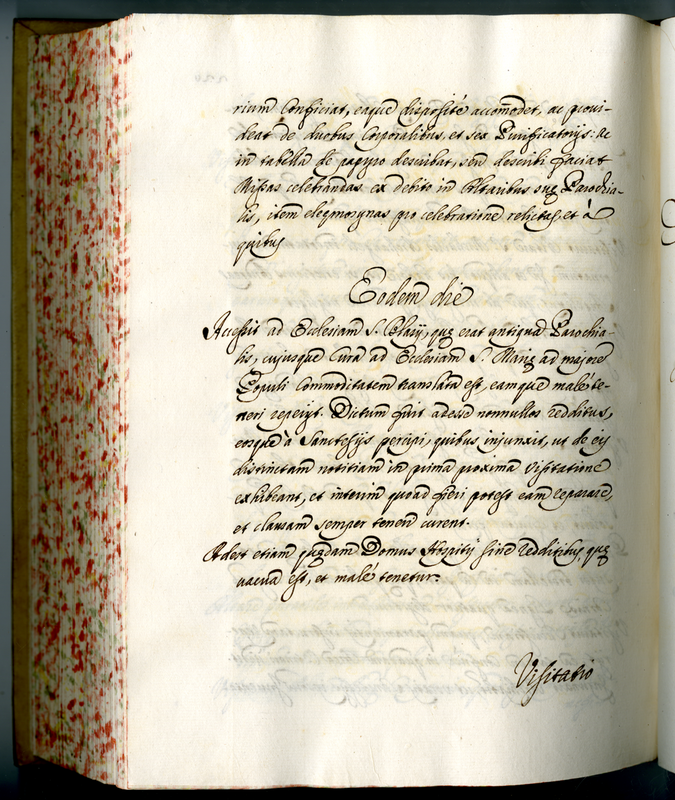 rium conficiat, eaque dispositè accomodet, ac provi-
deat de duobus Corporalibus, et sex Purificatorijs: Ac
in tabella de papyro describat, seu describi faciat
Missas celebrandas ex debito in Altaribus suę Parochia-
lis, item eleęmosynas pro celebratione relictas, et à
quibus
Eodem die
Accessit ad Ecclesiam S. Hilarij, quę erat antiqua Parochia-
lis, cujusque Cura ad Ecclesiam S. Marię ad majorē
Populi Commoditatem translata est, eamque malè te-
neri reperijt. Dictum fuit adesse nonnullos redditus,
eosque à Sanctesijs percipi, quibus injunxit, ut de eis
distinctam notitiam in prima proxima Visitatione
exhibeant, et interim quoad fieri potest eam reparare,
et clausam semper teneri curent.
Adest etiam quędam Domus Hospitij sine redditibus, quę
vacua est, et malè tenetur.
Visitatio